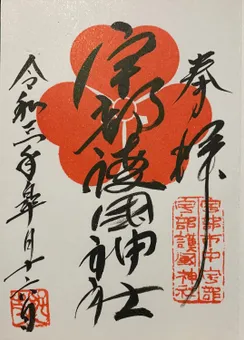 奉拝
宇部護國神社
令和三年皐月十六日
宇部市中宇部
宇部護國神社